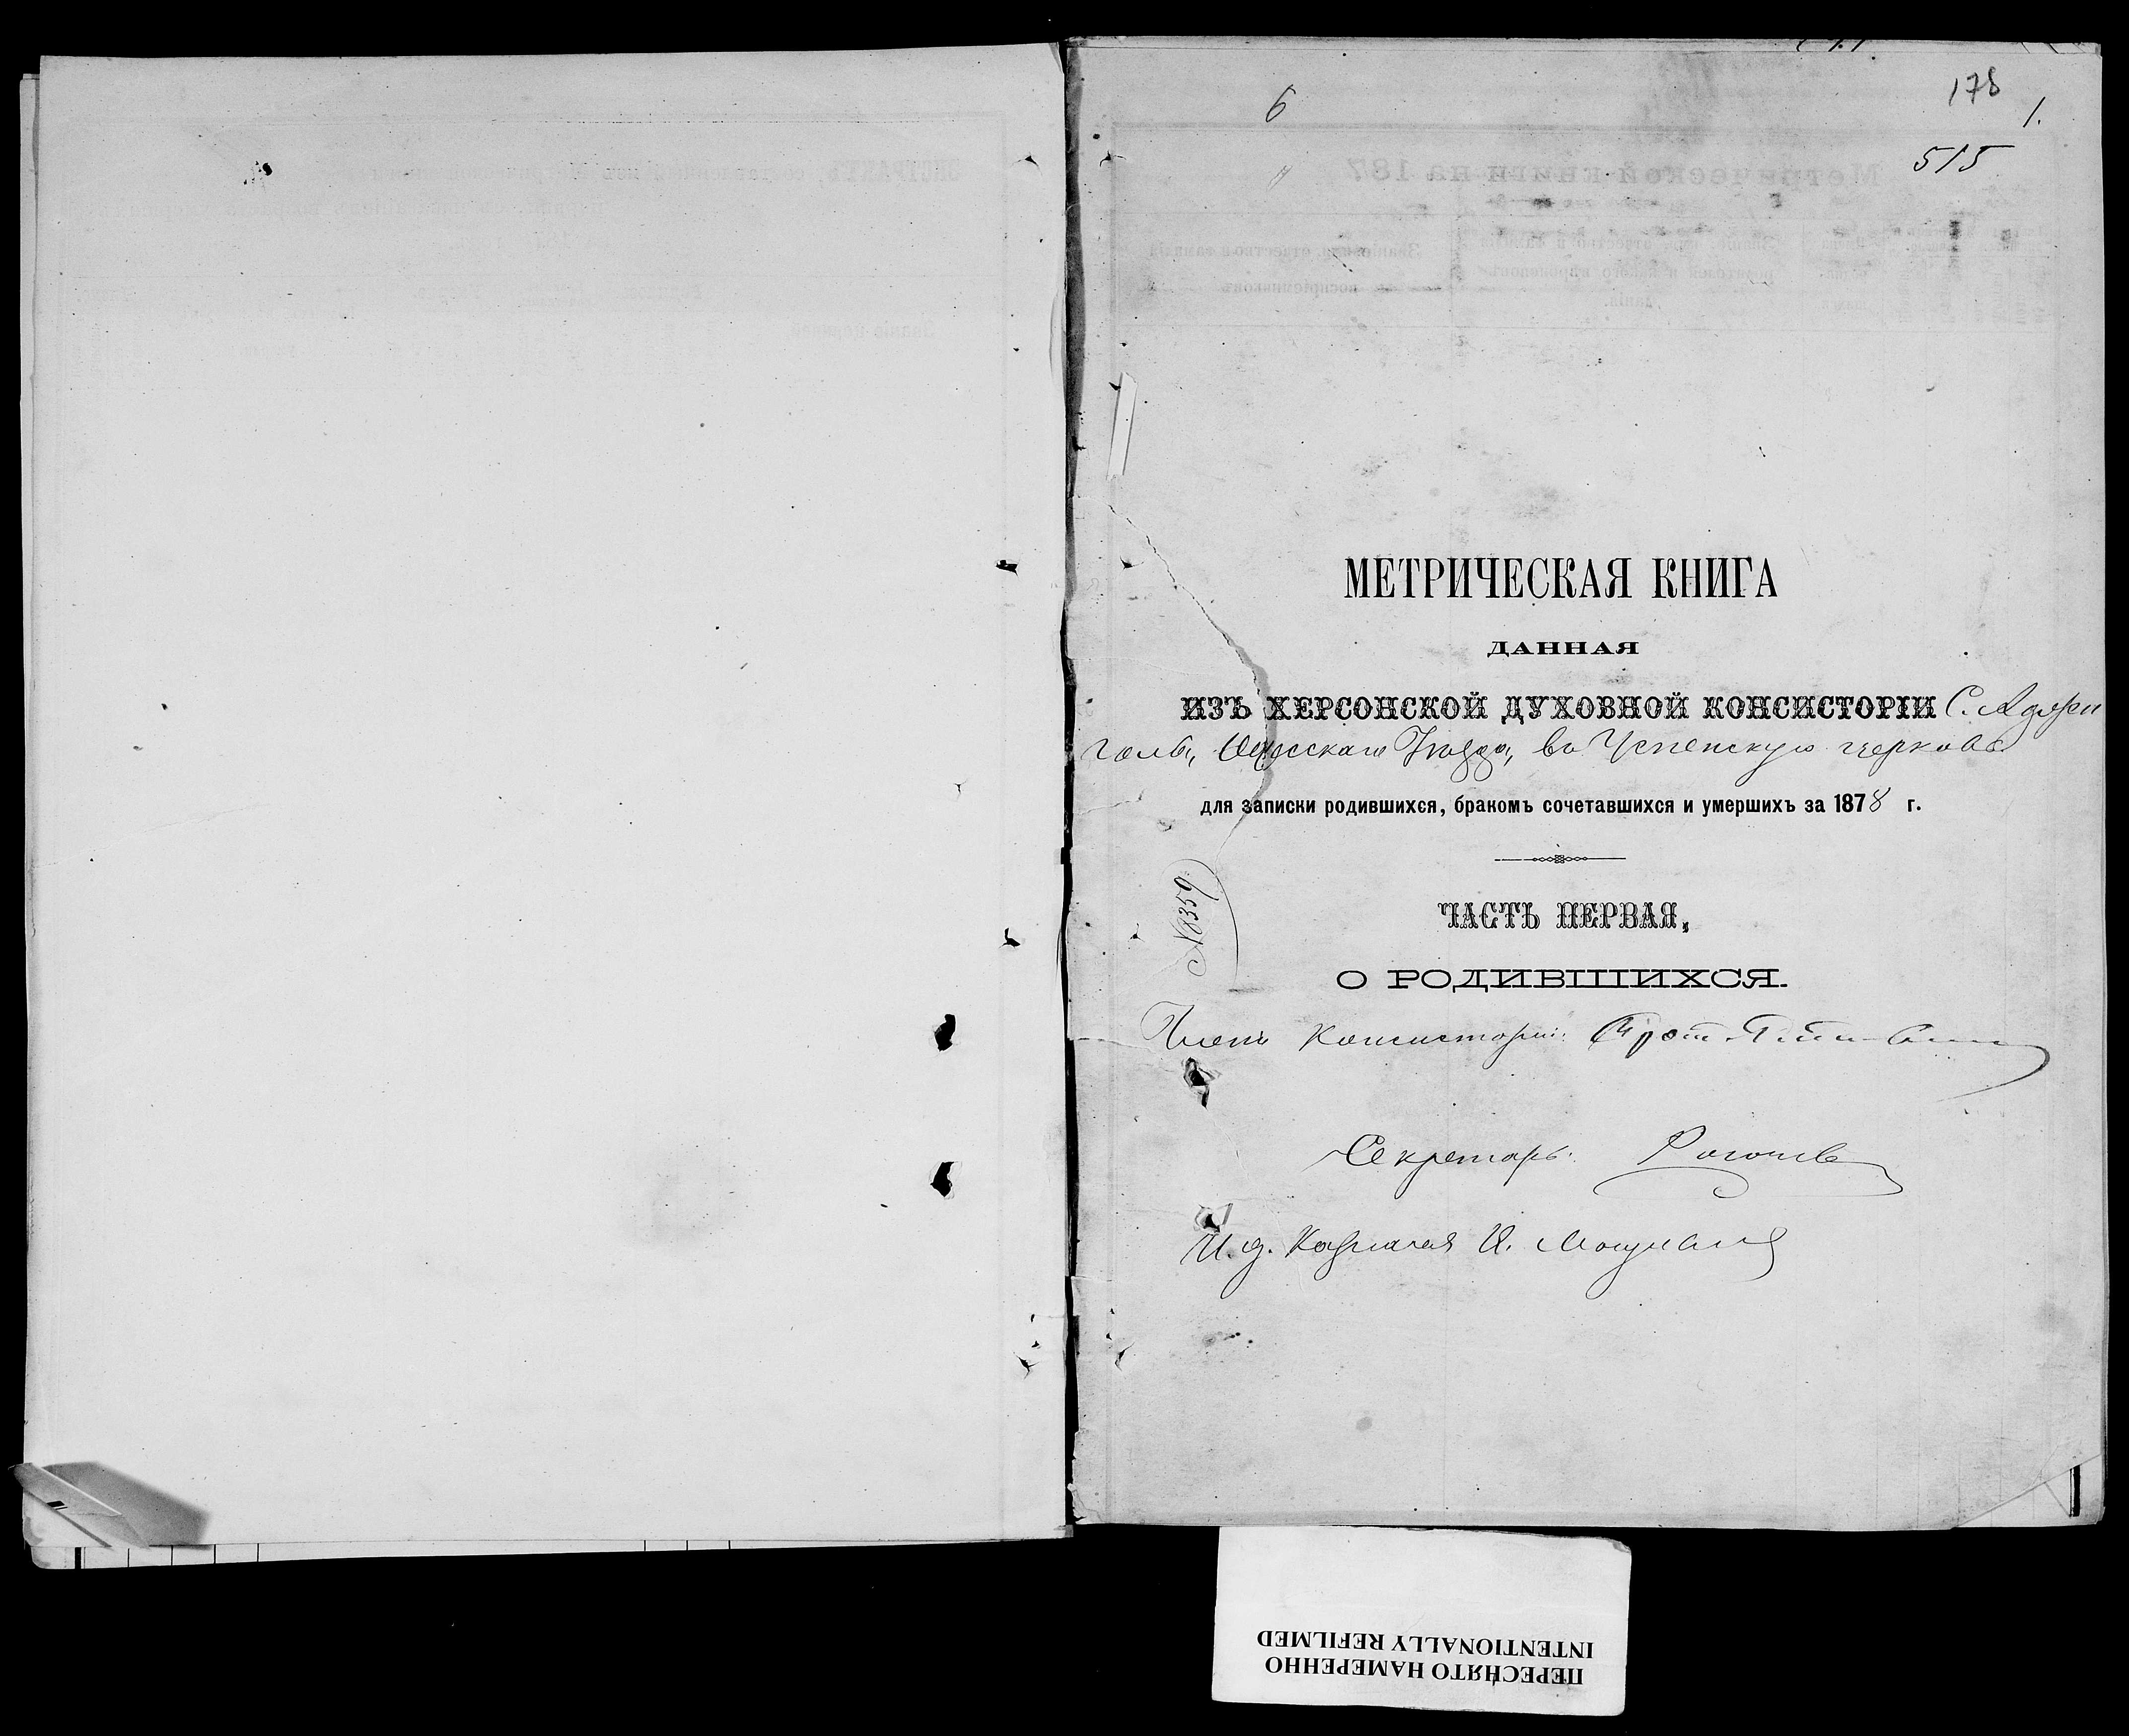 6
178
1.
515
МЕТРИЧЕСКАЯ КНИГА
ДАННАЯ
ИЗЪ ХЕРСОНСКОЙ ДУХОВНОЙ КОНСИСТОРІИ С. Аджи
голь, Одесскаго Уѣзда, въ Успенскую церковь
для записки родившихся, бракомъ сочетавшихся и умершихъ за 1878 г.
№ 359
ЧАСТЬ ПЕРВАЯ,
О РОДИВШИХСЯ.
Членъ Консисторіи: Прот.
Секретарь:
И. д. Казначея И.
ПЕРЕСНЯТО НАМЕРЕННО
INTENTIONALLY REFILMED